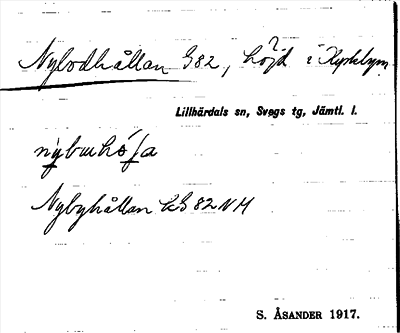 Nybodhållan G82, höjd i Kyrkbyn
Lillhärdals sn, Svegs tg, Jämtl. l.
Nybyhållan G 82 NM
S. ÅSANDER 1917.